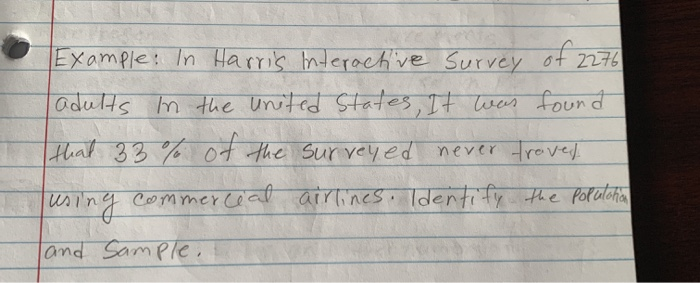 Example: In Harris Interactive Survey of 2276
adults in the United States, It was found
that 33% of the surveyed never travel
using commercial airlines. Identify the Population
and Sample.